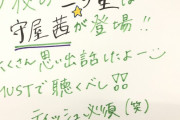 夜の二つ星は
守屋茜が登場!!
くさん思い出話したよー
MUSTで聴くべし!!
ティッシュ必須(笑)